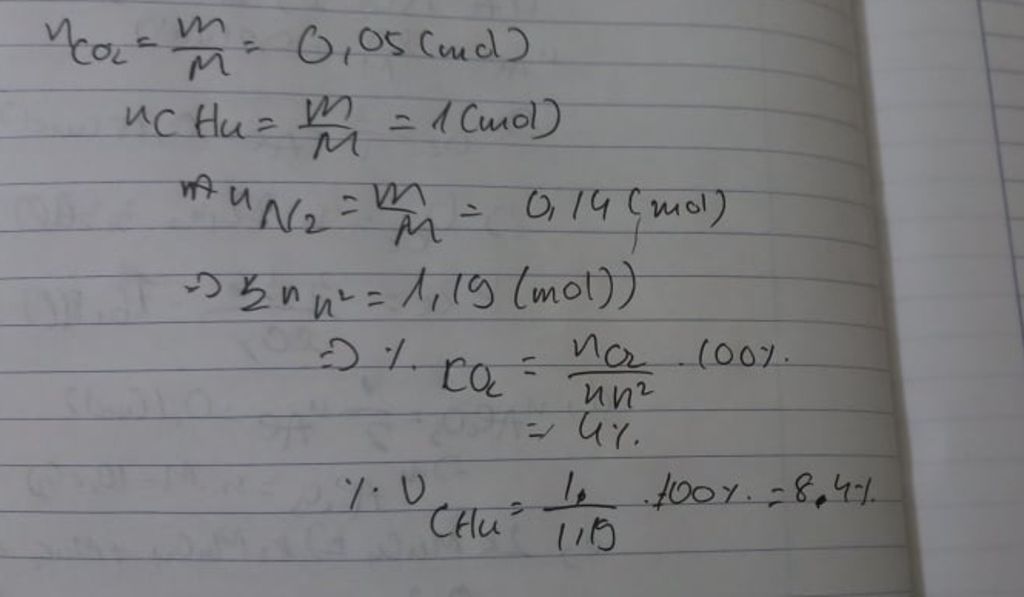 nCO2 = m/M = 0,05 (mol)
nCH4 = m/M = 1 (mol)
nN2 = m/M = 0,14 (mol)
=> Σn h² = 1,19 (mol))
=> % CO2 = nCO2/nh² . 100%.
= 4%.
%. V CH4 = 1,/1,19 . 100%. = 8,4%.